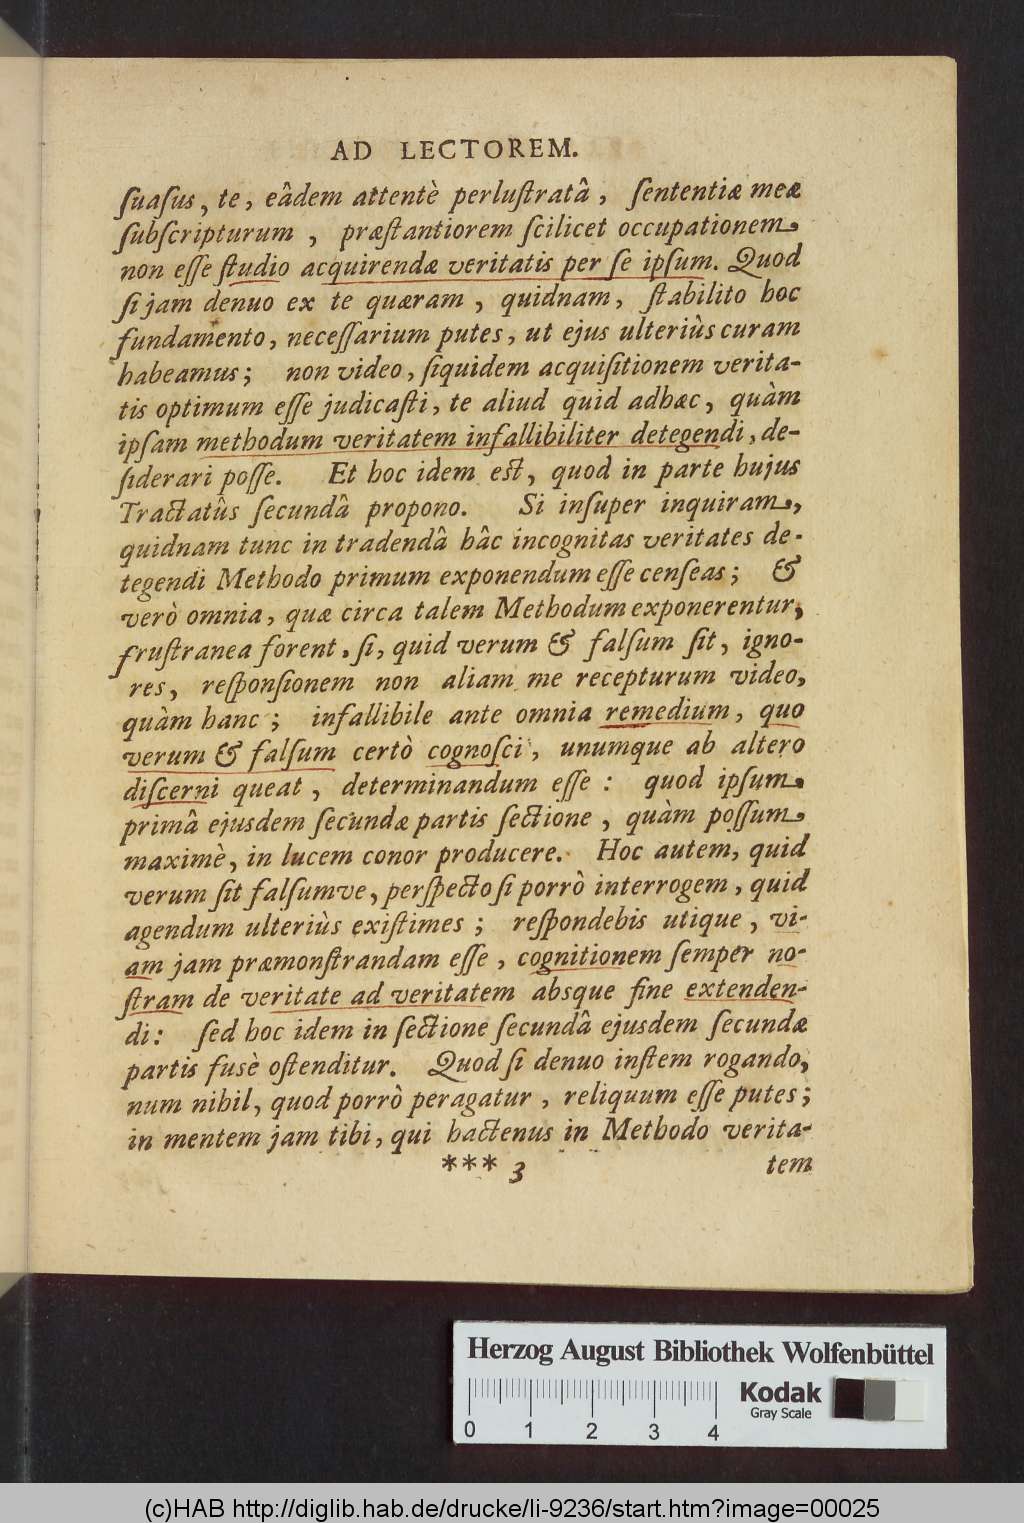 AD LECTOREM.
ſuaſus, te, eâdem attentè perluſtratâ, ſententiæ meæ
ſubſcripturum, præſtantiorem ſcilicet occupationem,
non eſſe ſtudio acquirendæ veritatis per ſe ipſum. Quod
ſi jam denuo ex te quæram, quidnam, ſtabilito hoc
fundamento, neceſſarium putes, ut ejus ulteriùs curam
habeamus; non video, ſiquidem acquiſitionem verita-
tis optimum eſſe judicaſti, te aliud quid adhæc, quàm
ipſam methodum veritatem infallibiliter detegendi, de-
ſiderari poſſe. Et hoc idem est, quod in parte hujus
Tractatûs ſecundâ propono. Si inſuper inquiram,
quidnam tunc in tradendâ hâc incognitas veritates de-
tegendi Methodo primum exponendum eſſe cenſeas; &
verò omnia, quæ circa talem Methodum exponerentur,
fruſtranea forent, ſi, quid verum & falſum ſit, igno-
res, reſponſionem non aliam me recepturum video,
quàm hanc; infallibile ante omnia remedium, quo
verum & falſum certò cognoſci, unumque ab altero
diſcerni queat, determinandum eſſe: quod ipſum
primâ ejusdem ſecundæ partis ſectione, quàm poſſum
maximè, in lucem conor producere. Hoc autem, quid
verum ſit falſumve, perſpecto ſi porrò interrogem, quid
agendum ulteriùs exiſtimes; reſpondebis utique, vi-
am jam præmonſtrandam eſſe, cognitionem ſemper no-
ſtram de veritate ad veritatem absque fine extenden-
di: ſed hoc idem in ſectione ſecundâ ejusdem ſecundæ
partis fusè oſtenditur. Quod ſi denuo inſtem rogando,
num nihil, quod porrò peragatur, reliquum eſſe putes;
in mentem jam tibi, qui hactenus in Methodo verita-
*** 3 tem
Herzog August Bibliothek Wolfenbüttel
Kodak
Gray Scale
0 1 2 3 4
(c)HAB http://diglib.hab.de/drucke/li-9236/start.htm?image=00025